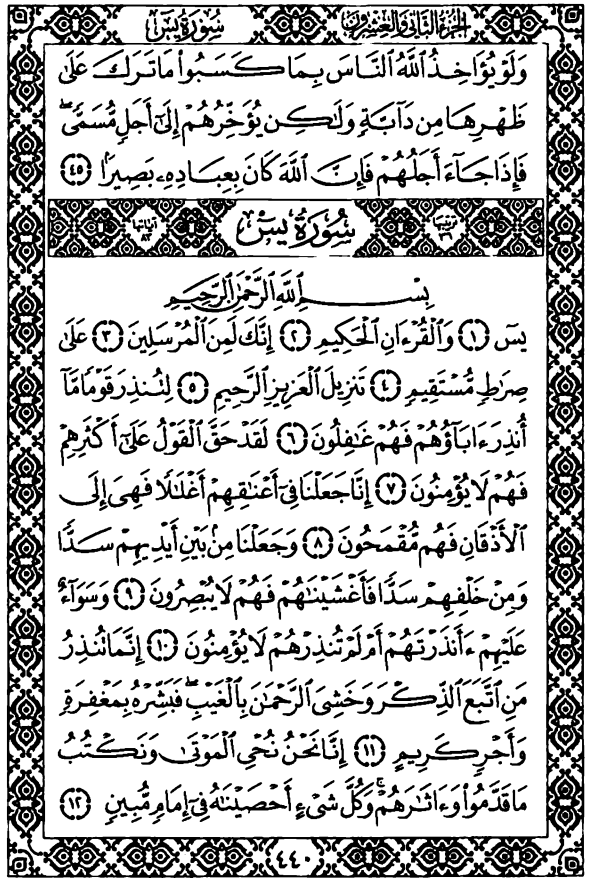 الجزء الثاني والعشرون
سُورَةُ يسٓ
وَلَوْ يُؤَاخِذُ ٱللَّهُ ٱلنَّاسَ بِمَا كَسَبُوا۟ مَا تَرَكَ عَلَىٰ
ظَهْرِهَا مِن دَآبَّةٍ وَلَٰكِن يُؤَخِّرُهُمْ إِلَىٰٓ أَجَلٍ مُّسَمًّى ۖ
فَإِذَا جَآءَ أَجَلُهُمْ فَإِنَّ ٱللَّهَ كَانَ بِعِبَادِهِۦ بَصِيرًۢا ٤٥
ترتيبها ٣٦
سُورَةُ يسٓ
آياتها ٨٣
بِسْمِ ٱللَّهِ ٱلرَّحْمَٰنِ ٱلرَّحِيمِ
يسٓ ١ وَٱلْقُرْءَانِ ٱلْحَكِيمِ ٢ إِنَّكَ لَمِنَ ٱلْمُرْسَلِينَ ٣ عَلَىٰ
صِرَٰطٍ مُّسْتَقِيمٍ ٤ تَنزِيلَ ٱلْعَزِيزِ ٱلرَّحِيمِ ٥ لِتُنذِرَ قَوْمًا مَّآ
أُنذِرَ ءَابَآؤُهُمْ فَهُمْ غَٰفِلُونَ ٦ لَقَدْ حَقَّ ٱلْقَوْلُ عَلَىٰٓ أَكْثَرِهِمْ
فَهُمْ لَا يُؤْمِنُونَ ٧ إِنَّا جَعَلْنَا فِىٓ أَعْنَٰقِهِمْ أَغْلَٰلًا فَهِىَ إِلَى
ٱلْأَذْقَانِ فَهُم مُّقْمَحُونَ ٨ وَجَعَلْنَا مِنۢ بَيْنِ أَيْدِيهِمْ سَدًّا
وَمِنْ خَلْفِهِمْ سَدًّا فَأَغْشَيْنَٰهُمْ فَهُمْ لَا يُبْصِرُونَ ٩ وَسَوَآءٌ
عَلَيْهِمْ ءَأَنذَرْتَهُمْ أَمْ لَمْ تُنذِرْهُمْ لَا يُؤْمِنُونَ ١٠ إِنَّمَا تُنذِرُ
مَنِ ٱتَّبَعَ ٱلذِّكْرَ وَخَشِىَ ٱلرَّحْمَٰنَ بِٱلْغَيْبِ ۖ فَبَشِّرْهُ بِمَغْفِرَةٍ
وَأَجْرٍ كَرِيمٍ ١١ إِنَّا نَحْنُ نُحْىِ ٱلْمَوْتَىٰ وَنَكْتُبُ
مَا قَدَّمُوا۟ وَءَاثَٰرَهُمْ ۚ وَكُلَّ شَىْءٍ أَحْصَيْنَٰهُ فِىٓ إِمَامٍ مُّبِينٍ ١٢
٤٤٠